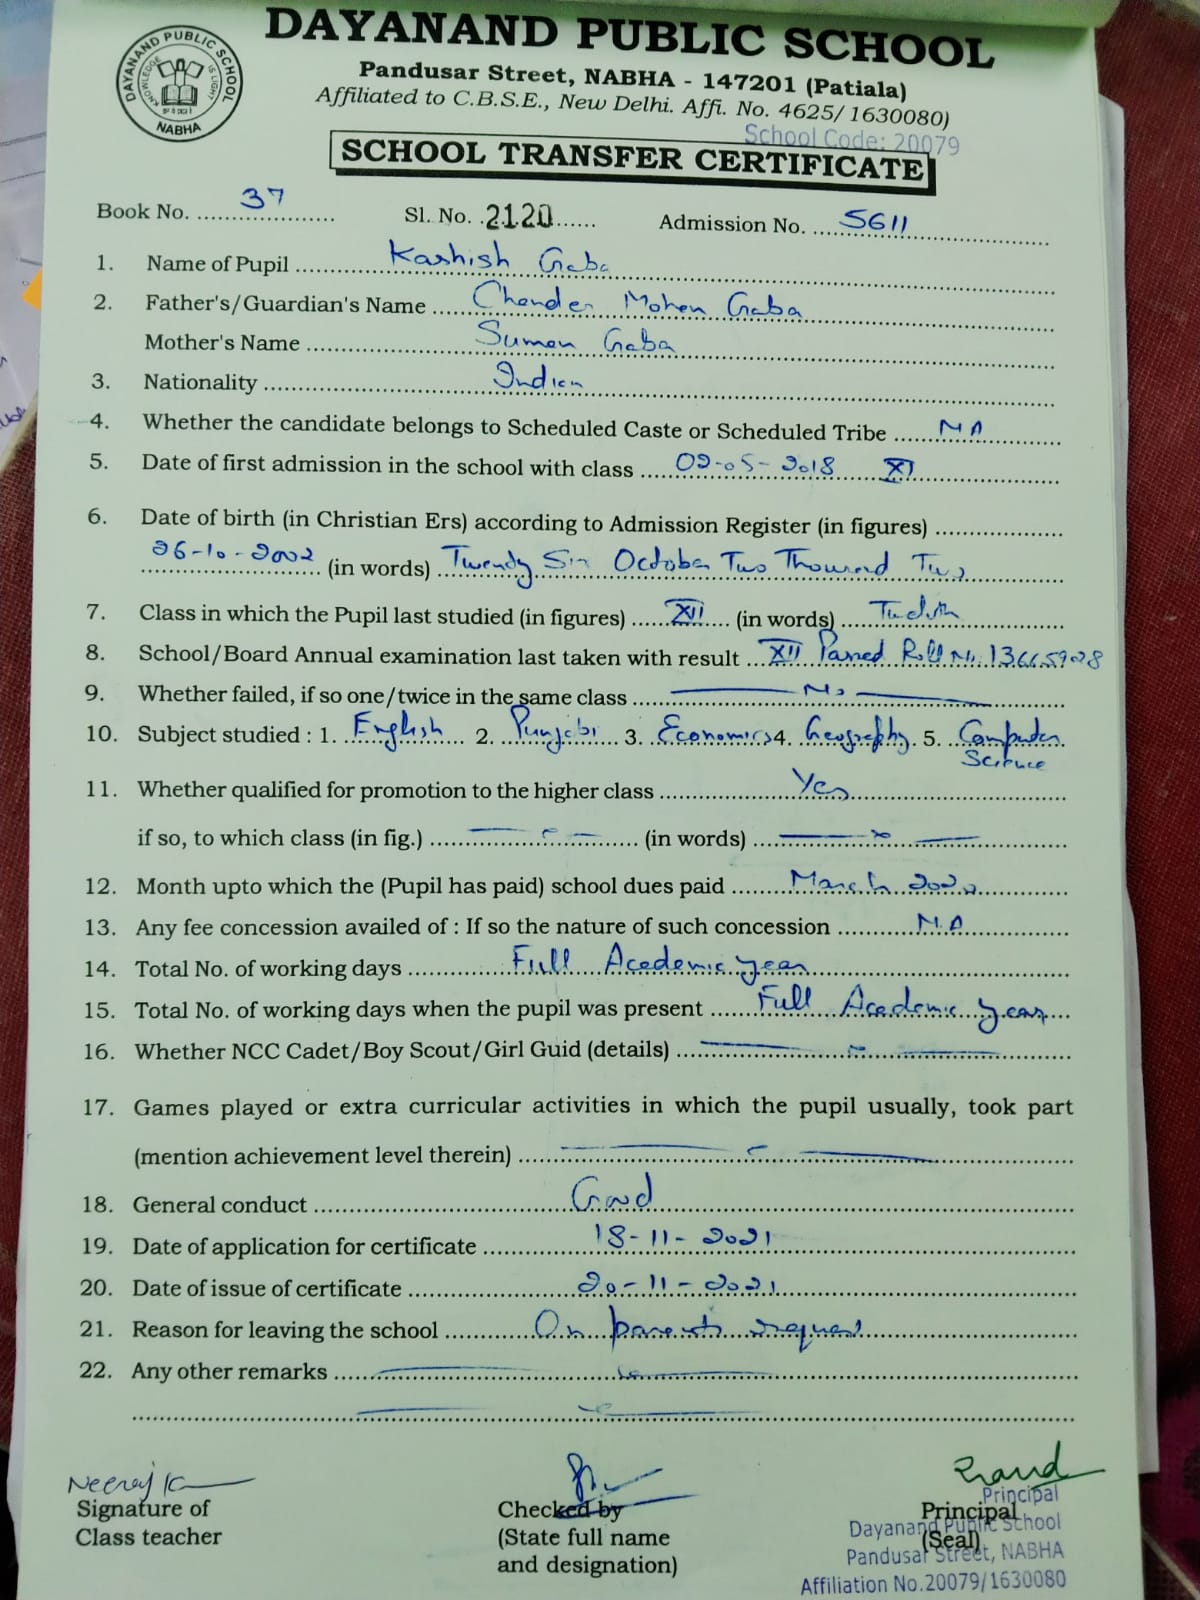 DAYANAND PUBLIC SCHOOL
DAYANAND PUBLIC SCHOOL
KNOWLEDGE IS LIGHT
NABHA
Pandusar Street, NABHA - 147201 (Patiala)
Affiliated to C.B.S.E., New Delhi. Affi. No. 4625/1630080)
School Code: 20079
SCHOOL TRANSFER CERTIFICATE
Book No. 37 Sl. No. 2120 Admission No. 5611
1. Name of Pupil Kashish Gaba
2. Father's/Guardian's Name Chander Mohan Gaba
Mother's Name Suman Gaba
3. Nationality Indian
4. Whether the candidate belongs to Scheduled Caste or Scheduled Tribe NA
5. Date of first admission in the school with class 02-05-2018 XI
6. Date of birth (in Christian Ers) according to Admission Register (in figures)
26-10-2002 (in words) Twenty Six October Two Thousand Two
7. Class in which the Pupil last studied (in figures) XII (in words) Twelfth
8. School/Board Annual examination last taken with result XII Passed Roll No. 13665928
9. Whether failed, if so one/twice in the same class No
10. Subject studied : 1. English 2. Punjabi 3. Economics 4. Geography 5. Computer
Science
11. Whether qualified for promotion to the higher class Yes
if so, to which class (in fig.) (in words)
12. Month upto which the (Pupil has paid) school dues paid March 2020
13. Any fee concession availed of : If so the nature of such concession N.A
14. Total No. of working days Full Academic year
15. Total No. of working days when the pupil was present Full Academic year
16. Whether NCC Cadet/Boy Scout/Girl Guid (details)
17. Games played or extra curricular activities in which the pupil usually, took part
(mention achievement level therein)
18. General conduct Good
19. Date of application for certificate 18-11-2021
20. Date of issue of certificate 20-11-2021
21. Reason for leaving the school On parents request
22. Any other remarks
Neeraj K
Signature of
Class teacher
Checked by
(State full name
and designation)
Principal
(Seal)
Principal
Dayanand Public School
Pandusar Street, NABHA
Affiliation No.20079/1630080